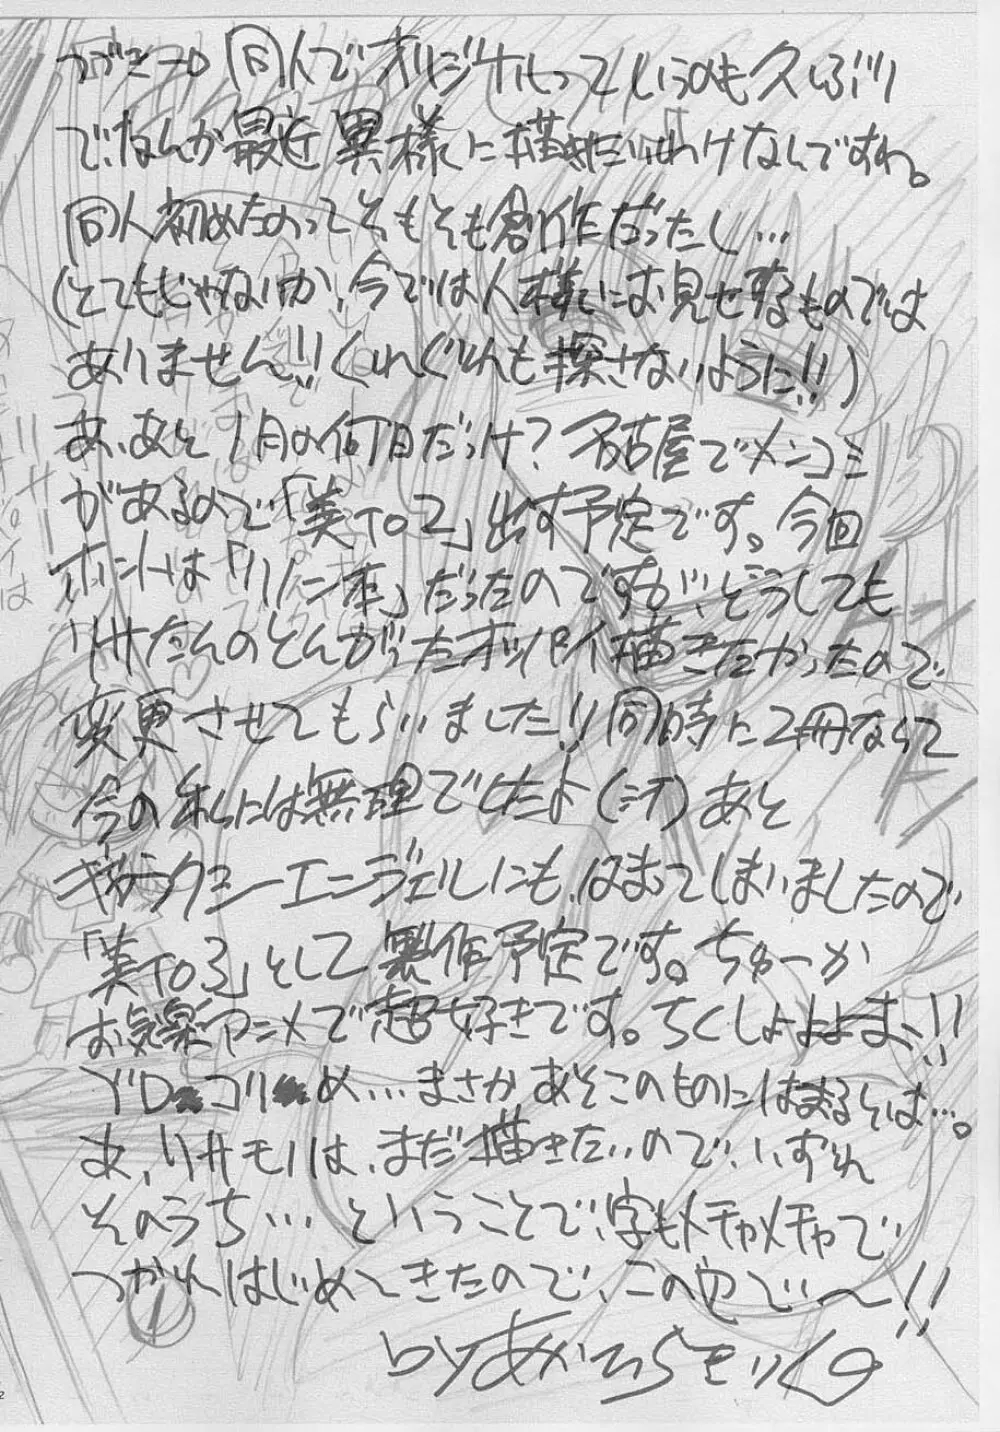 つづき→ 同人でオリジナルっていうのも久しぶり
でなんか最近異様に描きたいわけなんですわ。
同人初めたのってそもそも創作だったし…
(とてもじゃないが、今では人様にお見せするものでは
ありません!!くれぐれも探さないように!!)
あ、あと1月の何日だっけ?名古屋でメンコミ
があるので「美TO2」出す予定です。今回
ホントは「リノン本」だったのですが、どうしても
リサたんのとんがったオッパイ描きたかったので
変更させてもらいました!!同時に2冊なんて
今の私には無理でしたよ(汗)あと
ギャラクシーエンジェルにも、はまってしまいましたので
「美TO3」として製作予定です。ちゅーか
お気楽アニメで超好きです。ちくしょ!!
ブロ コリ め…まさかあそこのものにはまるとは…。
あ、リサモノは、まだ描きたいので、いずれ
そのうち…ということで、字もメチャメチャで
つかれはじめてきたので、このへんで〜!!
by
2